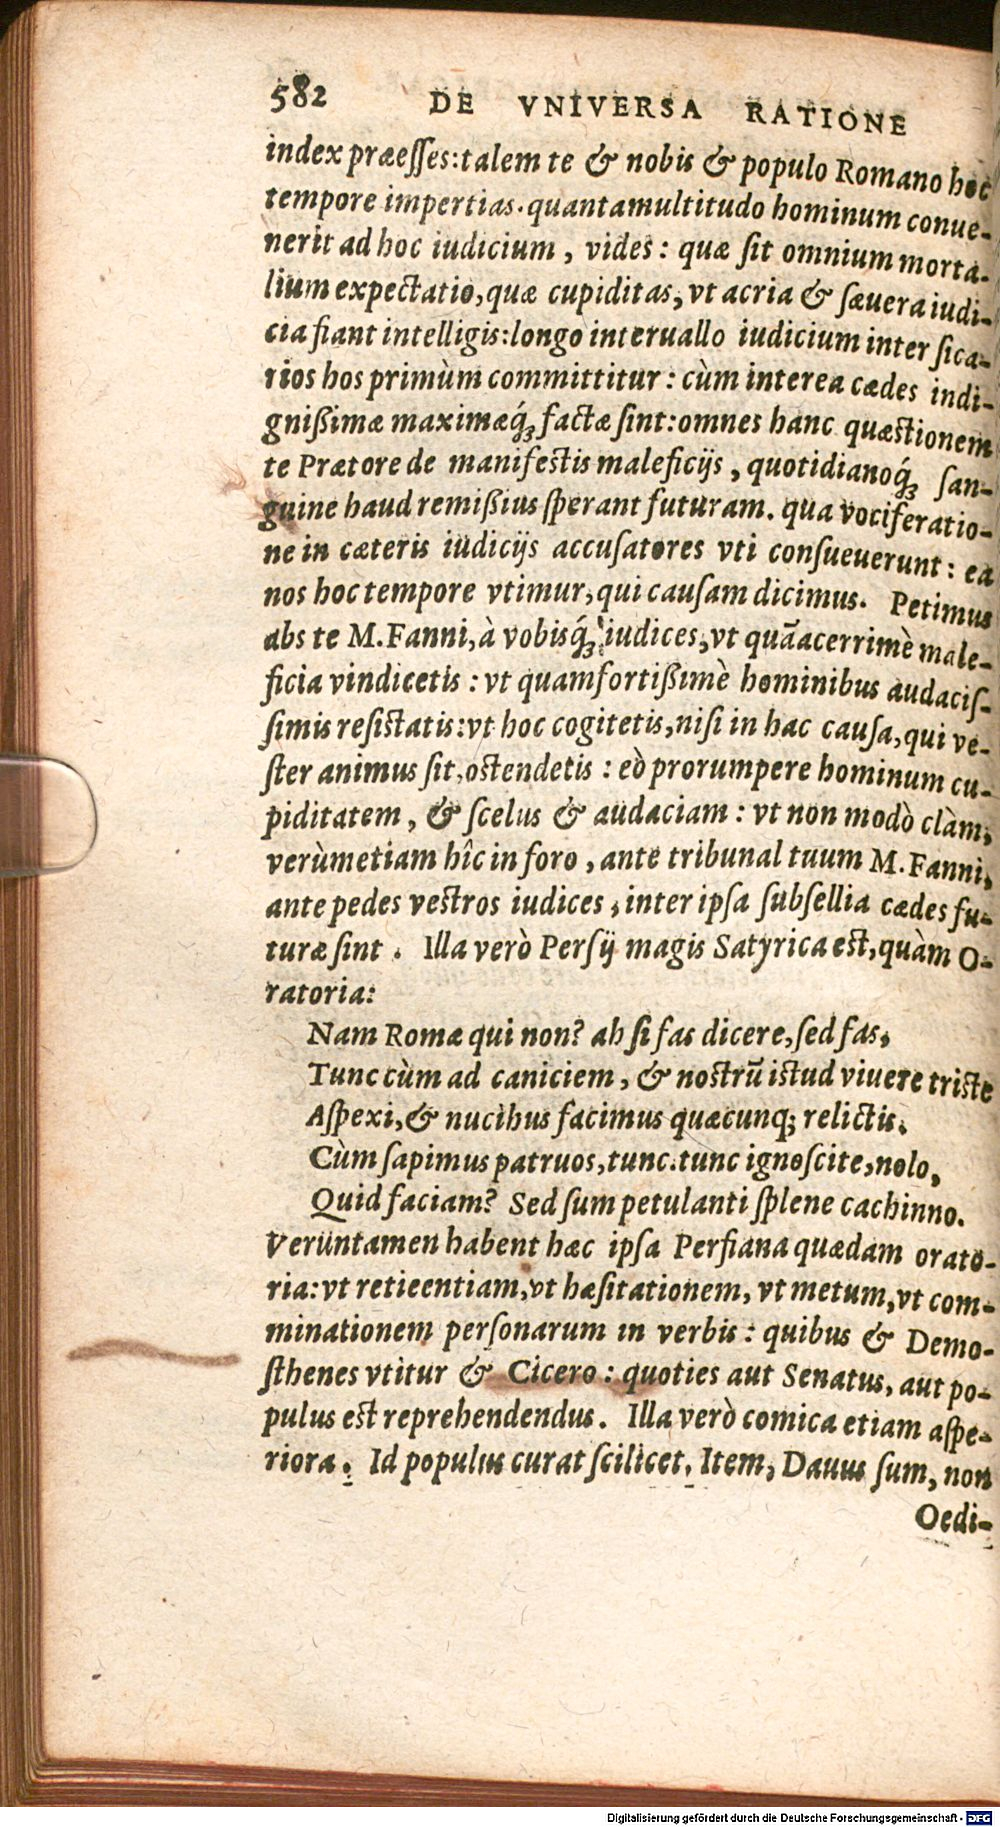 582 DE VNIVERSA RATIONE
index præeſſes: talem te & nobis & populo Romano hoc
tempore impertias. quanta multitudo hominum conue-
nerit ad hoc iudicium, vides: quæ ſit omnium morta-
lium expectatio, quæ cupiditas, vt acria & ſæuera iudi-
cia fiant intelligis: longo interuallo iudicium inter ſica-
rios hos primùm committitur: cùm interea cædes indi-
gnißimæ maximæq́ꝫ factæ ſint: omnes hanc quæſtionem
te Prætore de manifeſtis maleficijs, quotidianoq́ꝫ ſan-
guine haud remißius ſperant futuram. qua vociferatio-
ne in cæteris iudicijs accuſatores vti conſueuerunt: ea
nos hoc tempore vtimur, qui cauſam dicimus. Petimus
abs te M. Fanni, à vobisq́ꝫ iudices, vt quã acerrimè male-
ficia vindicetis: vt quam fortißimè hominibus audaciſ-
ſimis reſiſtatis: vt hoc cogitetis, niſi in hac cauſa, qui ve-
ſter animus ſit, oſtendetis: eò prorumpere hominum cu-
piditatem, & ſcelus & audaciam: vt non modò clàm,
verùm etiam hîc in foro, ante tribunal tuum M. Fanni,
ante pedes veſtros iudices, inter ipſa ſubſellia cædes fu-
turæ ſint. Illa verò Perſij magis Satyrica eſt, quàm O-
ratoria:
Nam Romæ qui non? ah ſi fas dicere, ſed fas,
Tunc cùm ad caniciem, & noſtrũ iſtud viuere triſte
Aſpexi, & nucibus facimus quæcunq; relictis.
Cùm ſapimus patruos, tunc. tunc ignoſcite, nolo,
Quid faciam? Sed ſum petulanti ſplene cachinno.
Veruntamen habent hæc ipſa Perſiana quædam orato-
ria: vt retieentiam, vt hæſitationem, vt metum, vt com-
minationem perſonarum in verbis: quibus & Demo-
ſthenes vtitur & Cicero: quoties aut Senatus, aut po-
pulus eſt reprehendendus. Illa verò comica etiam aſpe-
riora. Id populus curat ſcilicet. Item, Dauus ſum, non
Oedi-
Digitalisierung gefördert durch die Deutsche Forschungsgemeinschaft - DFG